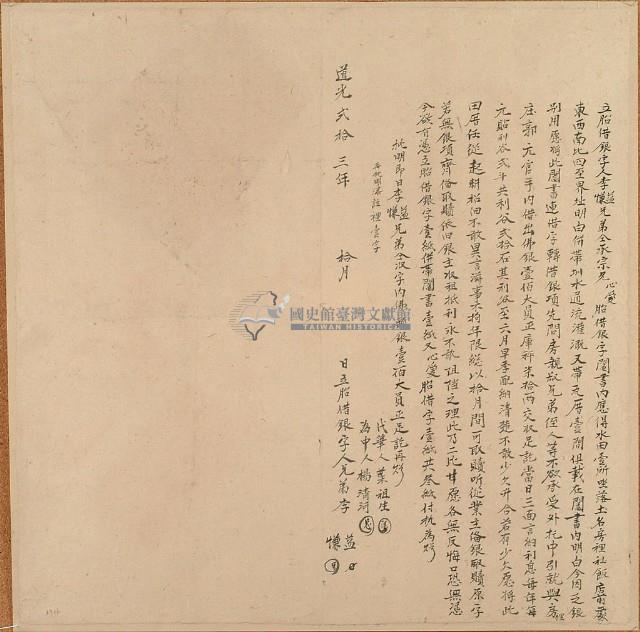 立胎借銀字人李益懷兄弟仝承宗兄心愛胎借銀字鬮書內應得水田壹所坐落土名房裡社飯店前
東西南北四至界址明白併帶圳水通流灌溉又帶瓦厝壹間俱載在鬮書內明白今因乏銀
別用愿將此鬮書連借字轉借銀項先問房親叔兄弟侄人等不欲承受外托中引就與房裡
庄郭元官手內借出佛銀壹佰大員正庫秤柒拾兩交收足訖當日三面言約利息每年每
元貼利谷弍斗共利谷弍拾石其利谷至六月早季配納清楚不敢少欠升合若有少欠愿將此
田厝任從起耕招佃不敢異言滋事不拘年限總以拾月間可取贖聽從業主備銀取贖原字
若無銀項齊俻取贖依旧銀主收租抵利永不敢阻擋之理此乃二比甘愿各無反悔口恐無憑
今欲有憑立胎借銀字壹紙併帶鬮書壹紙又心愛胎借字壹紙共叁紙付執為炤
批明即日李益懷兄弟仝收字內佛銀壹佰大員正足訖再炤
再批明添註裡壹字
代筆人葉祖生
為中人楊清河
道光弍拾三年拾月日立胎借銀字人兄弟李益懷
國史館臺灣文獻館
TAIWAN HISTORICA